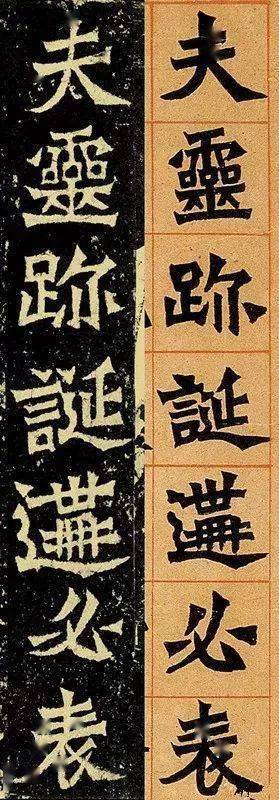 夫靈跡誕遘必表
夫靈跡誕遘必表